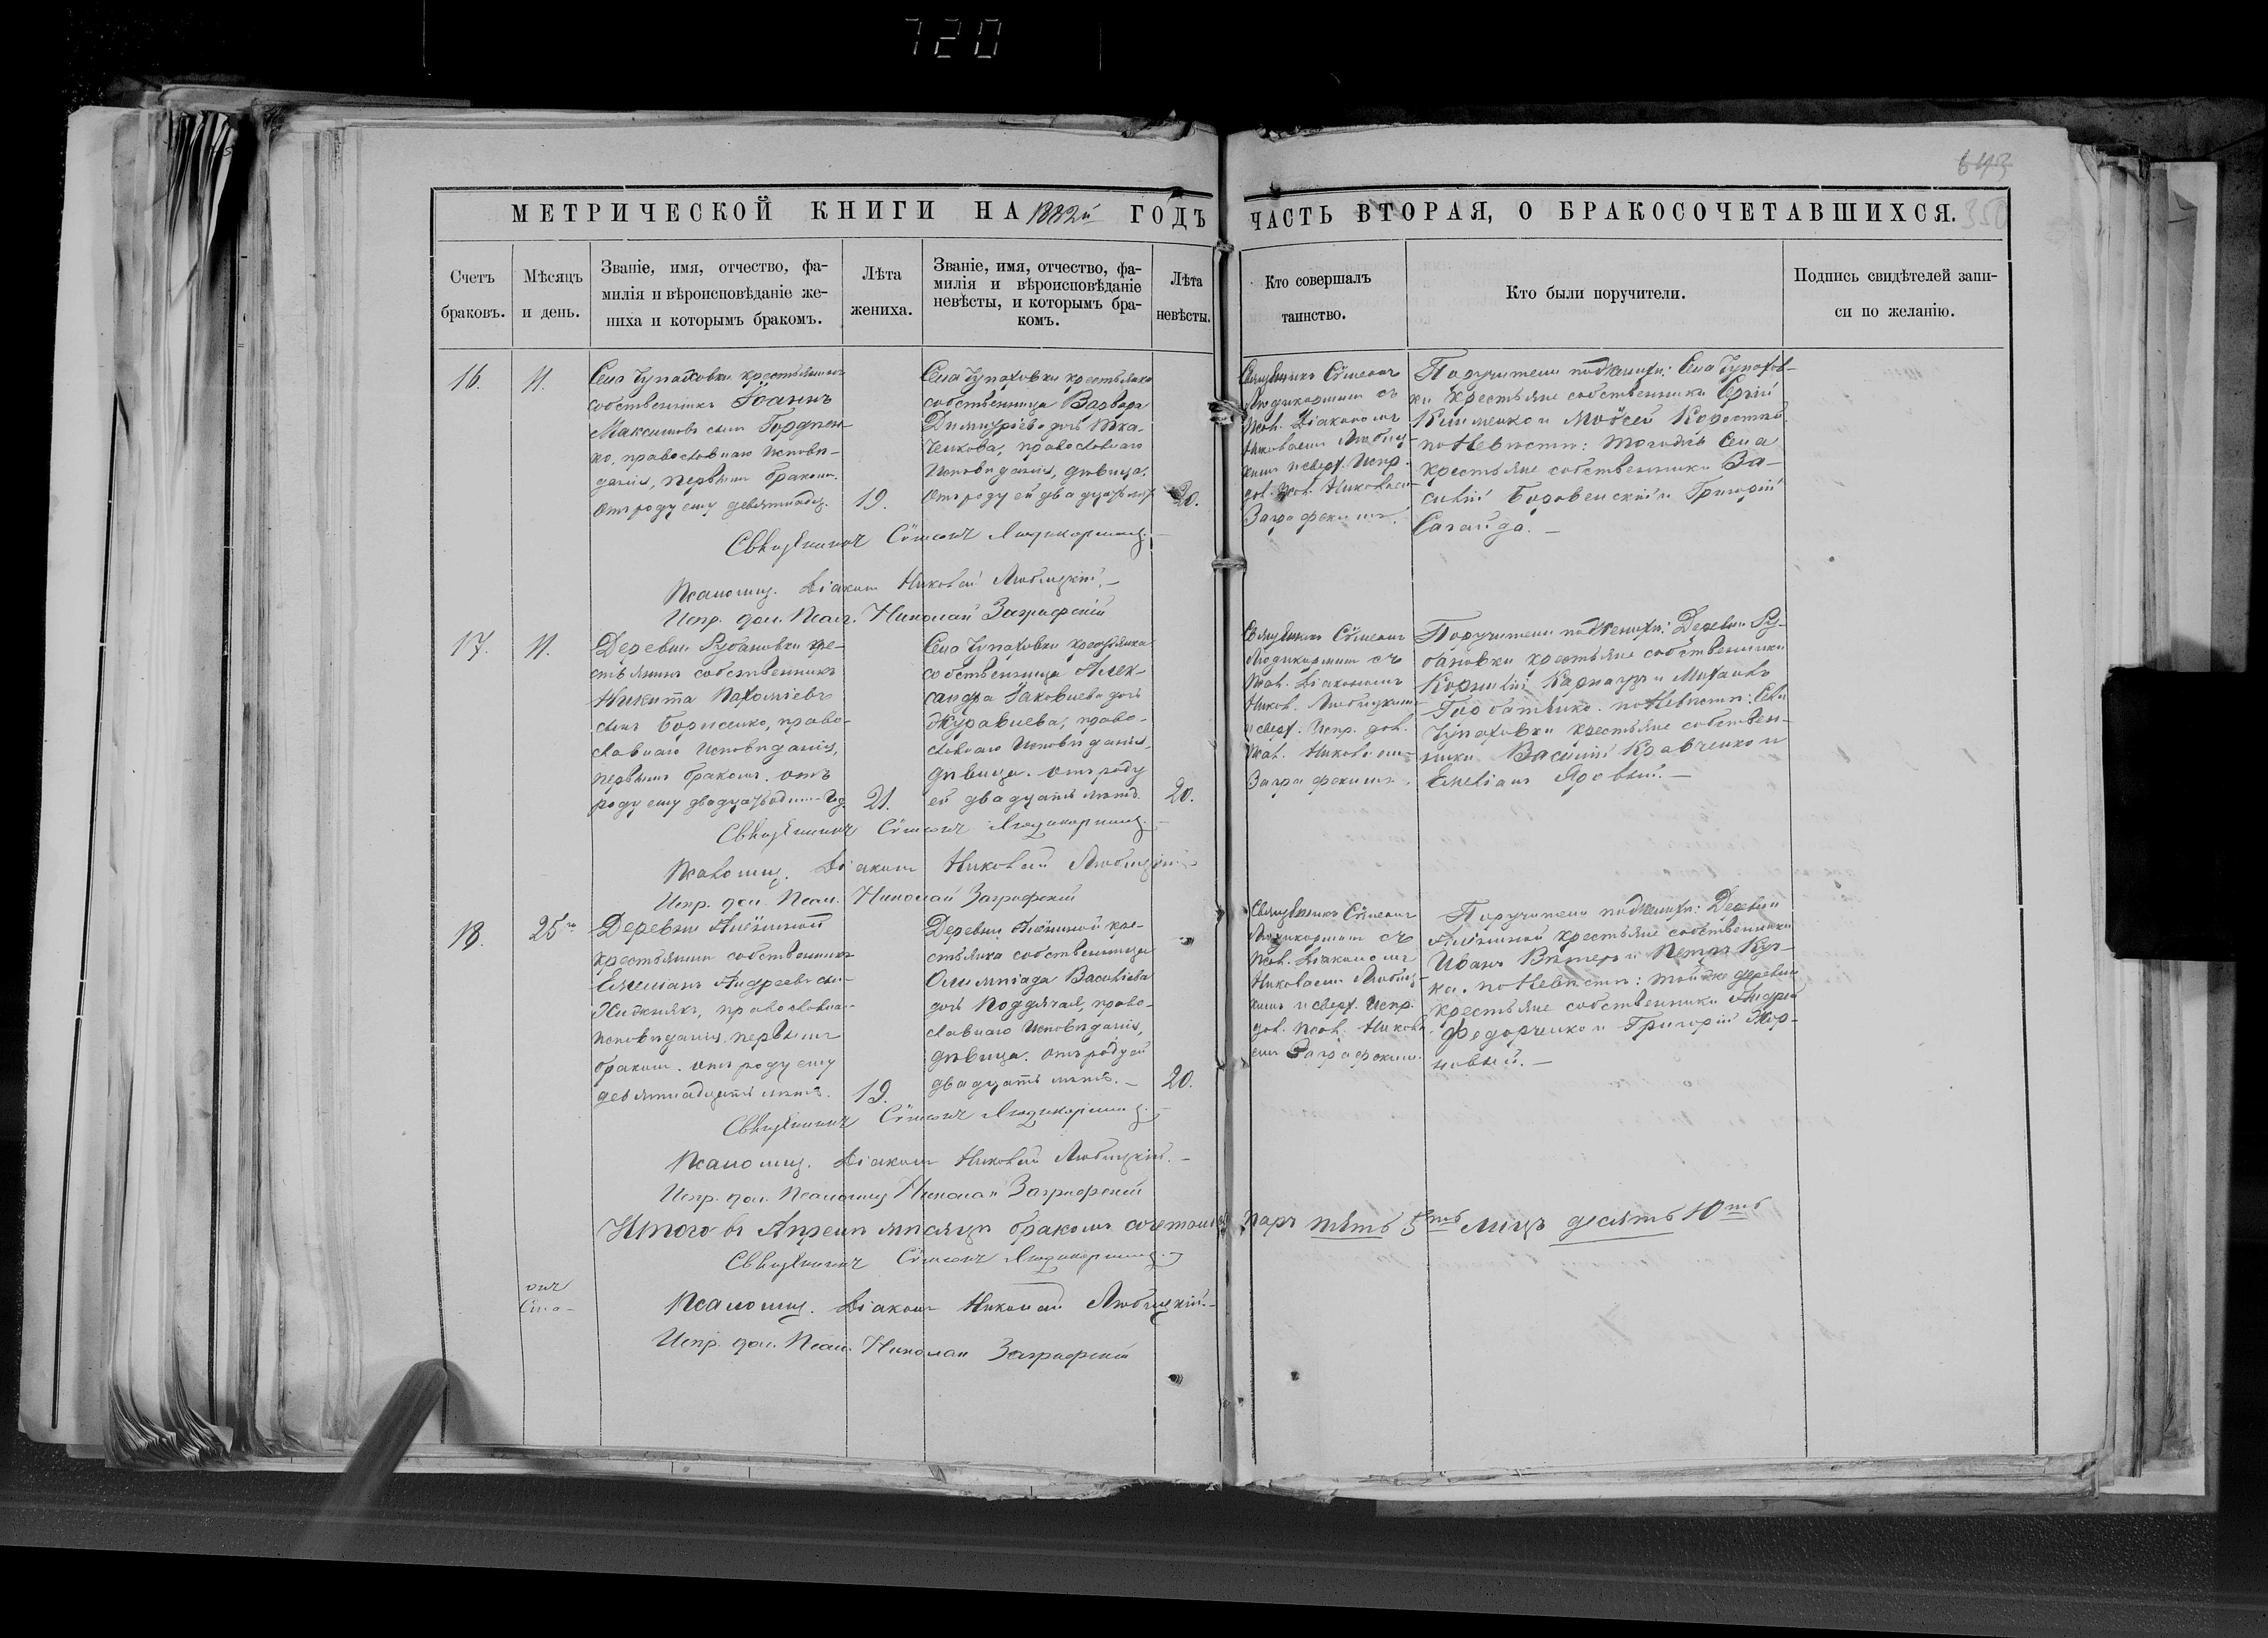 720
643
350
МЕТРИЧЕСКОЙ КНИГИ НА 1882й ГОДЪ
ЧАСТЬ ВТОРАЯ, О БРАКОСОЧЕТАВШИХСЯ.
Счетъ
браковъ.
Мѣсяцъ
и день.
Званіе, имя, отчество, фа-
милія и вѣроисповѣданіе же-
ниха и которымъ бракомъ.
Лѣта
жениха.
Званіе, имя, отчество, фа-
милія и вѣроисповѣданіе
невѣсты, и которымъ бра-
комъ.
Лѣта
невѣсты.
Кто совершалъ
таинство.
Кто были поручители.
Подпись свидѣтелей запи-
си по желанію.
16.
11.
Села Чупаховки крестьянинъ
собственникъ Іоаннъ
Максимовъ сынъ Гордіен-
ко, православнаго исповѣ-
данія, первымъ бракомъ.
отъ роду ему девятнадц.
19.
Села Чупаховки крестьянка
собственница Варвара
Димитріева дочь Тка-
ченкова, православнаго
исповѣданія, дѣвица.
отъ роду ей двадцать лѣт
20.
Священникъ Сѵмеонъ
съ
Псал. Діакономъ
Николаемъ Любиц-
кимъ и сверх. Испр.
дол. Псал. Николаем
Заграфскимъ.
Поручители по женихѣ: Села Чупахов-
ки крестьяне собственники
Клименко и Моѵсей
по невѣстѣ: того же Села
крестьяне собственники Ва-
силій Боровенскій и Григорій
Сагайда. —
Священникъ Сѵмеонъ
Псаломщ. Діаконъ Николай Любицкій. —
Испр. дол. Псал. Николай Заграфскій
17.
11.
Деревни Рубановки кре-
стьянинъ собственникъ
Никита Пахоміевъ
сынъ Борисенко, право-
славнаго исповѣданія,
первымъ бракомъ. отъ
роду ему двадцать одинъ год
21.
Села Чупаховки крестьянка
собственница Алек-
сандра Іаковлева дочь
Журавлева, право-
славнаго исповѣданія,
дѣвица. отъ роду
ей двадцать лѣтъ.
20.
Священникъ Сѵмеонъ
съ
Псал. Діакономъ
Никол. Любицкимъ
и сверх. Испр. дол.
Псал. Николаем
Заграфскимъ.
Поручители по женихѣ: Деревни Ру-
бановки крестьяне собственники
Корнилій и Михаилъ
Горбатенко. по невѣстѣ: Села
Чупаховки крестьяне собствен-
ники Василій Кравченко и
Емеліанъ Яровый. —
Священникъ Сѵмеонъ
Псаломщ. Діаконъ Николай Любицкій
Испр. дол. Псал. Николай Заграфскій
18.
25го
Деревни
крестьянинъ собственникъ
Емеліанъ Андреевъ сын
православна
исповѣданія, первымъ
бракомъ. отъ роду ему
девятнадцать лѣтъ.
19.
Деревни кре-
стьянка собственница
Олимпіада Василіева
дочь православнаго исповѣданія,
дѣвица. отъ роду ей
двадцать лѣтъ. —
20.
Священникъ Сѵмеонъ
съ
Псал. Діакономъ
Николаемъ Любиц-
кимъ и сверх. Испр.
дол. Псал. Никола
емъ Заграфским.
Поручители по женихѣ: Деревни
крестьяне собственники
Иванъ и Петръ
по невѣстѣ: той же деревни
крестьяне собственники Андрей
Федорченко и Григорій Жор-
новый. —
Священникъ Сѵмеонъ
Псаломщ. Діаконъ Николай Любицкій. —
Испр. дол. Псаломщ Николай Заграфскій
Итого въ Апрелѣ мѣсяцѣ бракомъ сочетано паръ пять 5ть лицъ десять 10ть
Священникъ Сѵмеонъ
Псаломщ. Діаконъ Николай Любицкій. —
Испр. дол. Псал. Николай Заграфскій